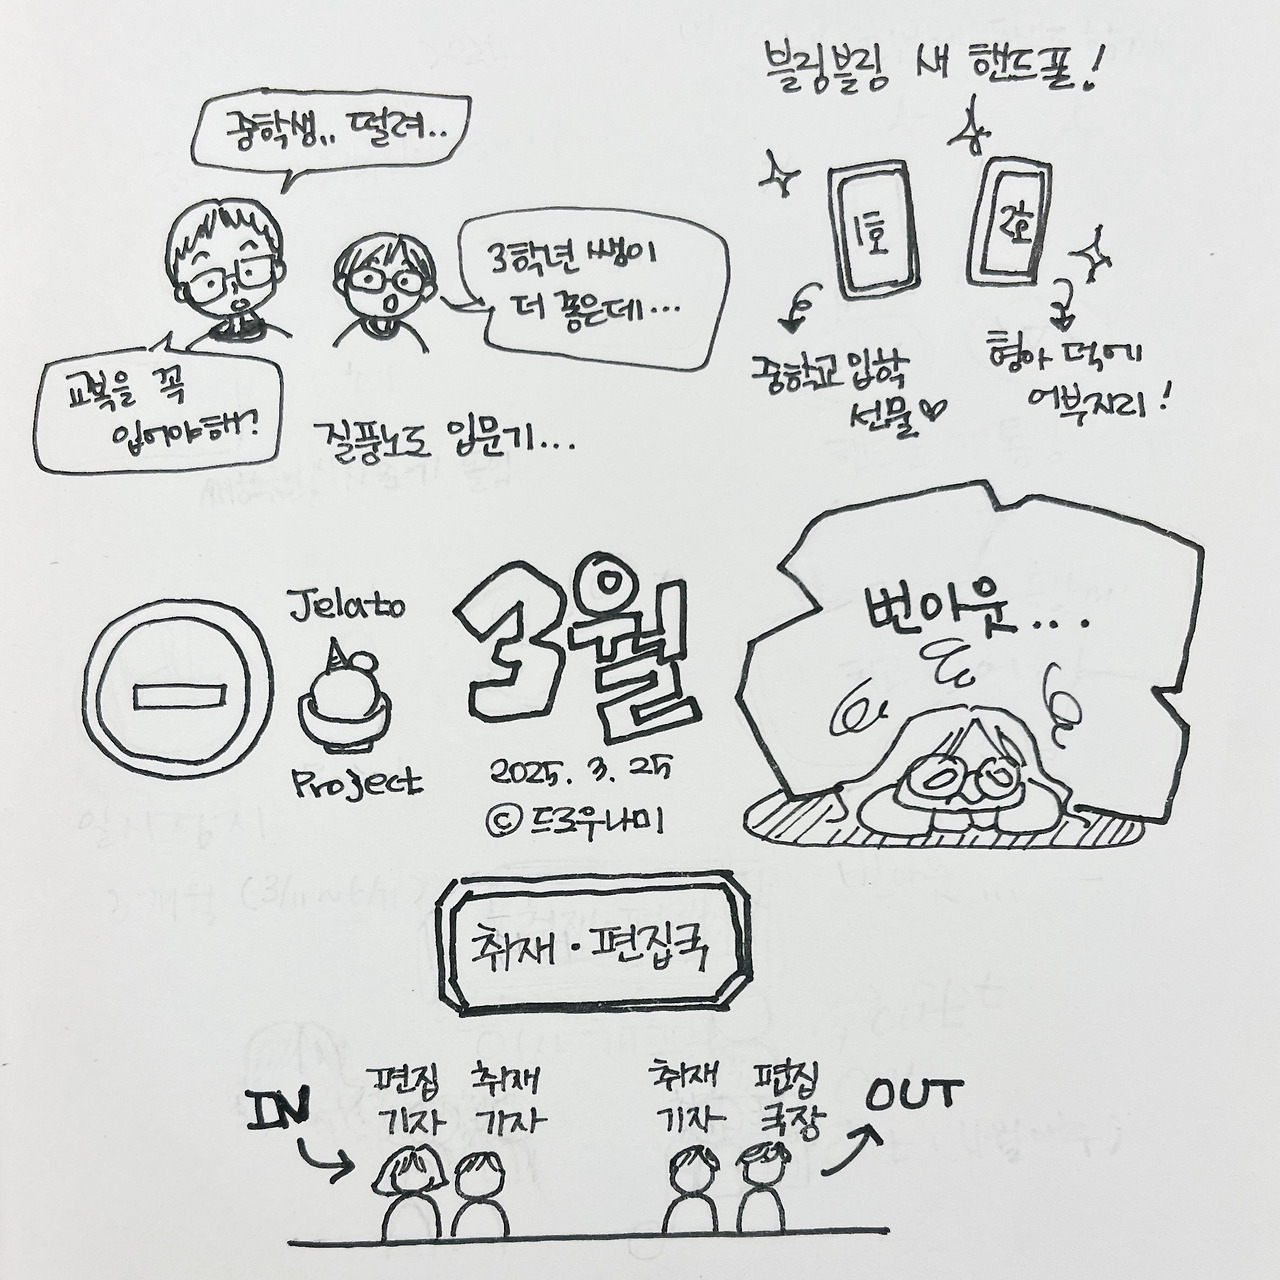 중학생.. 떨려..
3학년 1쌤이
더 좋은데...
교복을 꼭
입어야해?
질풍노도 입문기...
블링블링 새 핸드폰!
1호
2호
중학교 입학
선물♡
형아 덕에
어부지리!
Jelato
Project
3월
2025. 3. 25
© 드로우나미
번아웃...
취재·편집국
IN
편집 취재
기자 기자
취재 편집
기자 국장
OUT